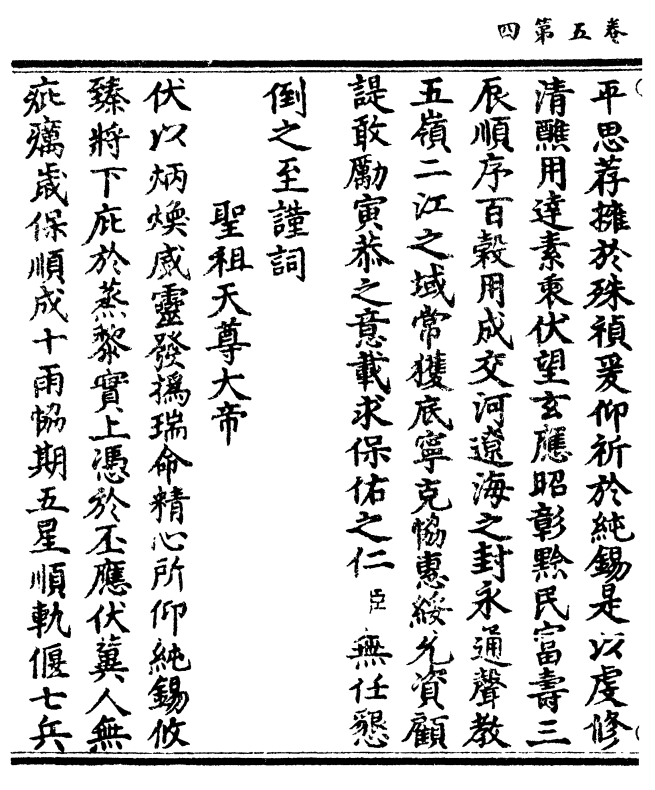 卷五第四
平思荐擁於殊禎爰仰祈於純錫是以虔修
清醮用達素衷伏望玄應昭彰黔民富壽三
辰順序百穀用成交河遼海之封永通聲教
五嶺二江之域常獲底寧克恊惠綏允資顧
諟敢勵寅恭之意載求保佑之仁臣無任懇
倒之至謹詞
聖祖天尊大帝
伏以炳煥威靈發撝瑞命精心所仰純錫攸
臻將下庇於蒸黎實上憑於丕應伏冀人無
疵癘歲保順成十雨恊期五星順軌偃七兵